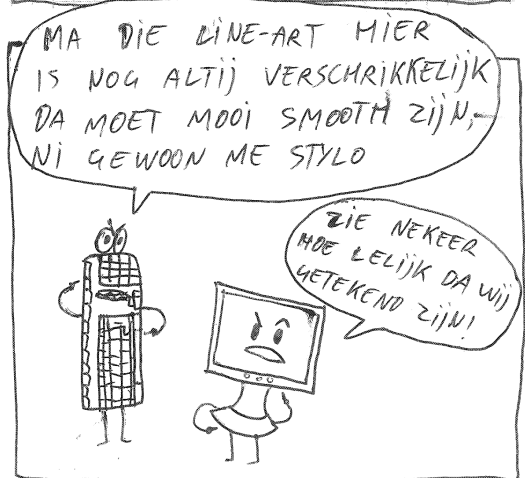 MA DIE LINE-ART HIER
IS NOG ALTIJ VERSCHRIKKELIJK
DA MOET MOOI SMOOTH ZIJN,
NI GEWOON ME STYLO
ZIE NEKEER
HOE LELIJK DA WIJ
GETEKEND ZIJN!